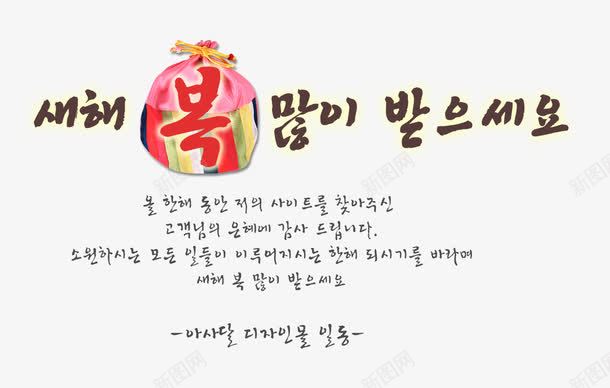 새해 복 많이 받으세요
올 한해 동안 저의 사이트를 찾아주신
고객님의 은혜에 감사 드립니다.
소원하시는 모든 일들이 이루어지시는 한해 되시기를 바라며
새해 복 많이 받으세요
-아사달 디자인몰 일동-